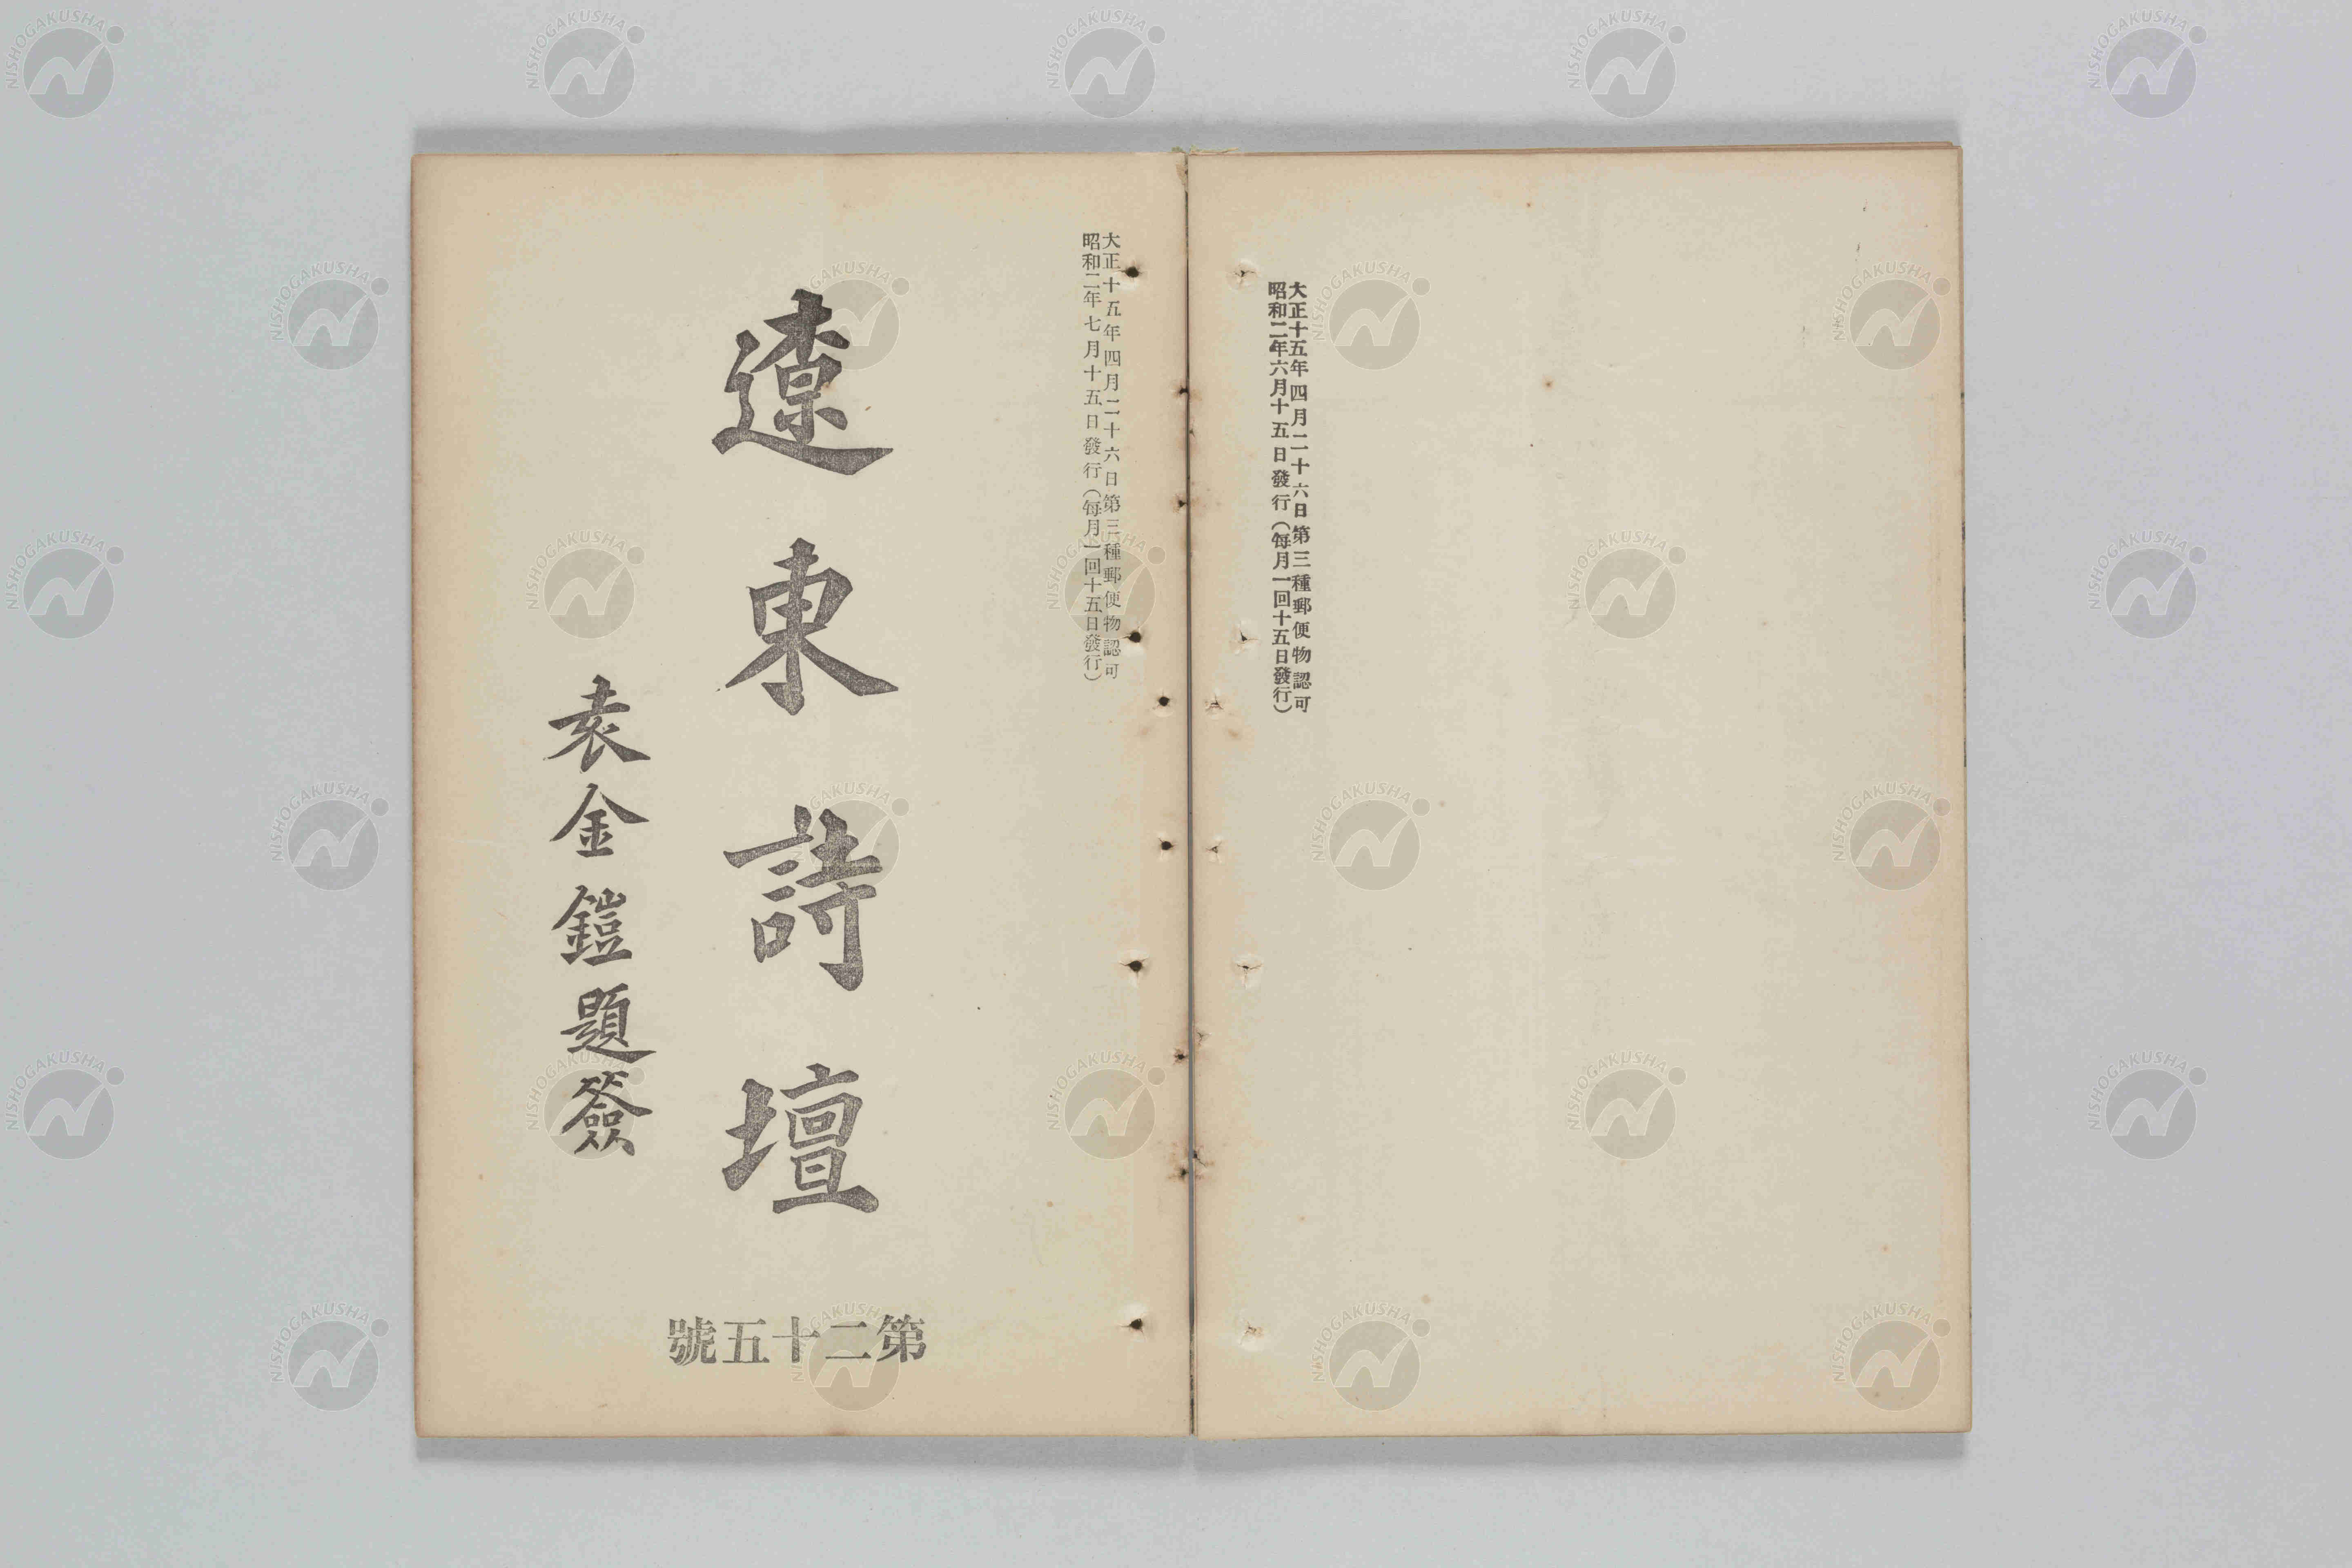 大正十五年四月二十六日第三種郵便物認可
昭和二年六月十五日發行（每月一回十五日發行）
大正十五年四月二十六日第三種郵便物認可
昭和二年七月十五日發行（每月一回十五日發行）
遼東詩壇
袁金鎧題簽
第二十五號
NISHOGAKUSHA